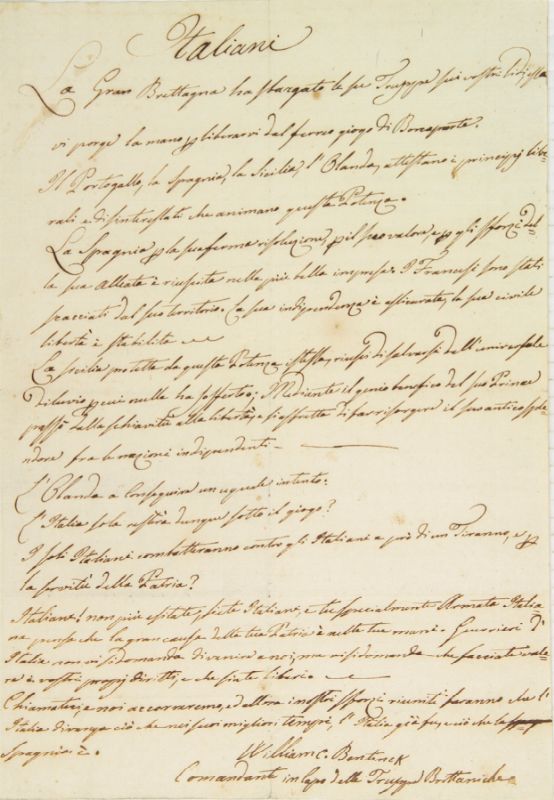 Italiani
La Gran Brettagna ha sbargato le sue Truppe sui vostri lidi, essa
vi porge la mano p liberarvi dal ferreo giogo di Bonaparte.
Il Portogallo, la Spagnia, la Sicilia, l'Olanda, attestano i principj libe-
rali e disinteressati che animano questa Potenza.
La Spagnia p la sua ferma risoluzione, p il suo valore, e p gli sforzi del-
la sua Alleata è riuscita nella più bella impresa. I Francesi sono stati
scacciati dal suo territorio. La sua indipendenza è assicurata, la sua civile
libertà è stabilita
La Sicilia protetta da questa Potenza istessa, riuscì di salvarsi dall'universale
diluvio, p cui nulla ha sofferto; Mediante il genio benefico del suo Principe
passò dalla schiavitù alla libertà, e si affretta di far risorgere il suo antico sple-
ndore fra le nazioni indipendenti.
L'Olanda a conseguire un uguale intento.
L'Italia sola resterà dunque sotto il giogo?
I soli Italiani combatteranno contro gli Italiani a prò di un Tiranno, e p
la servitù della Patria?
Italiani! non più esitate, siate Italiani, e tu specialmente Armata Italia
na pensa che la gran causa della tua Patria è nelle tue mani. Guerrieri d'
Italia non vi si domanda di venire a noi, ma vi si domanda che facciate vale-
re i vostri proprj diritti, e che siate liberi.
Chiamateci, e noi accorreremo, ed allora i nostri sforzi riuniti faranno che l'
Italia divenga ciò che nei suoi migliori tempi, l'Italia già fu, e ciò che la
Spagnia è.
William C. Bentinck
Comandante in Capo delle Truppe Brittaniche